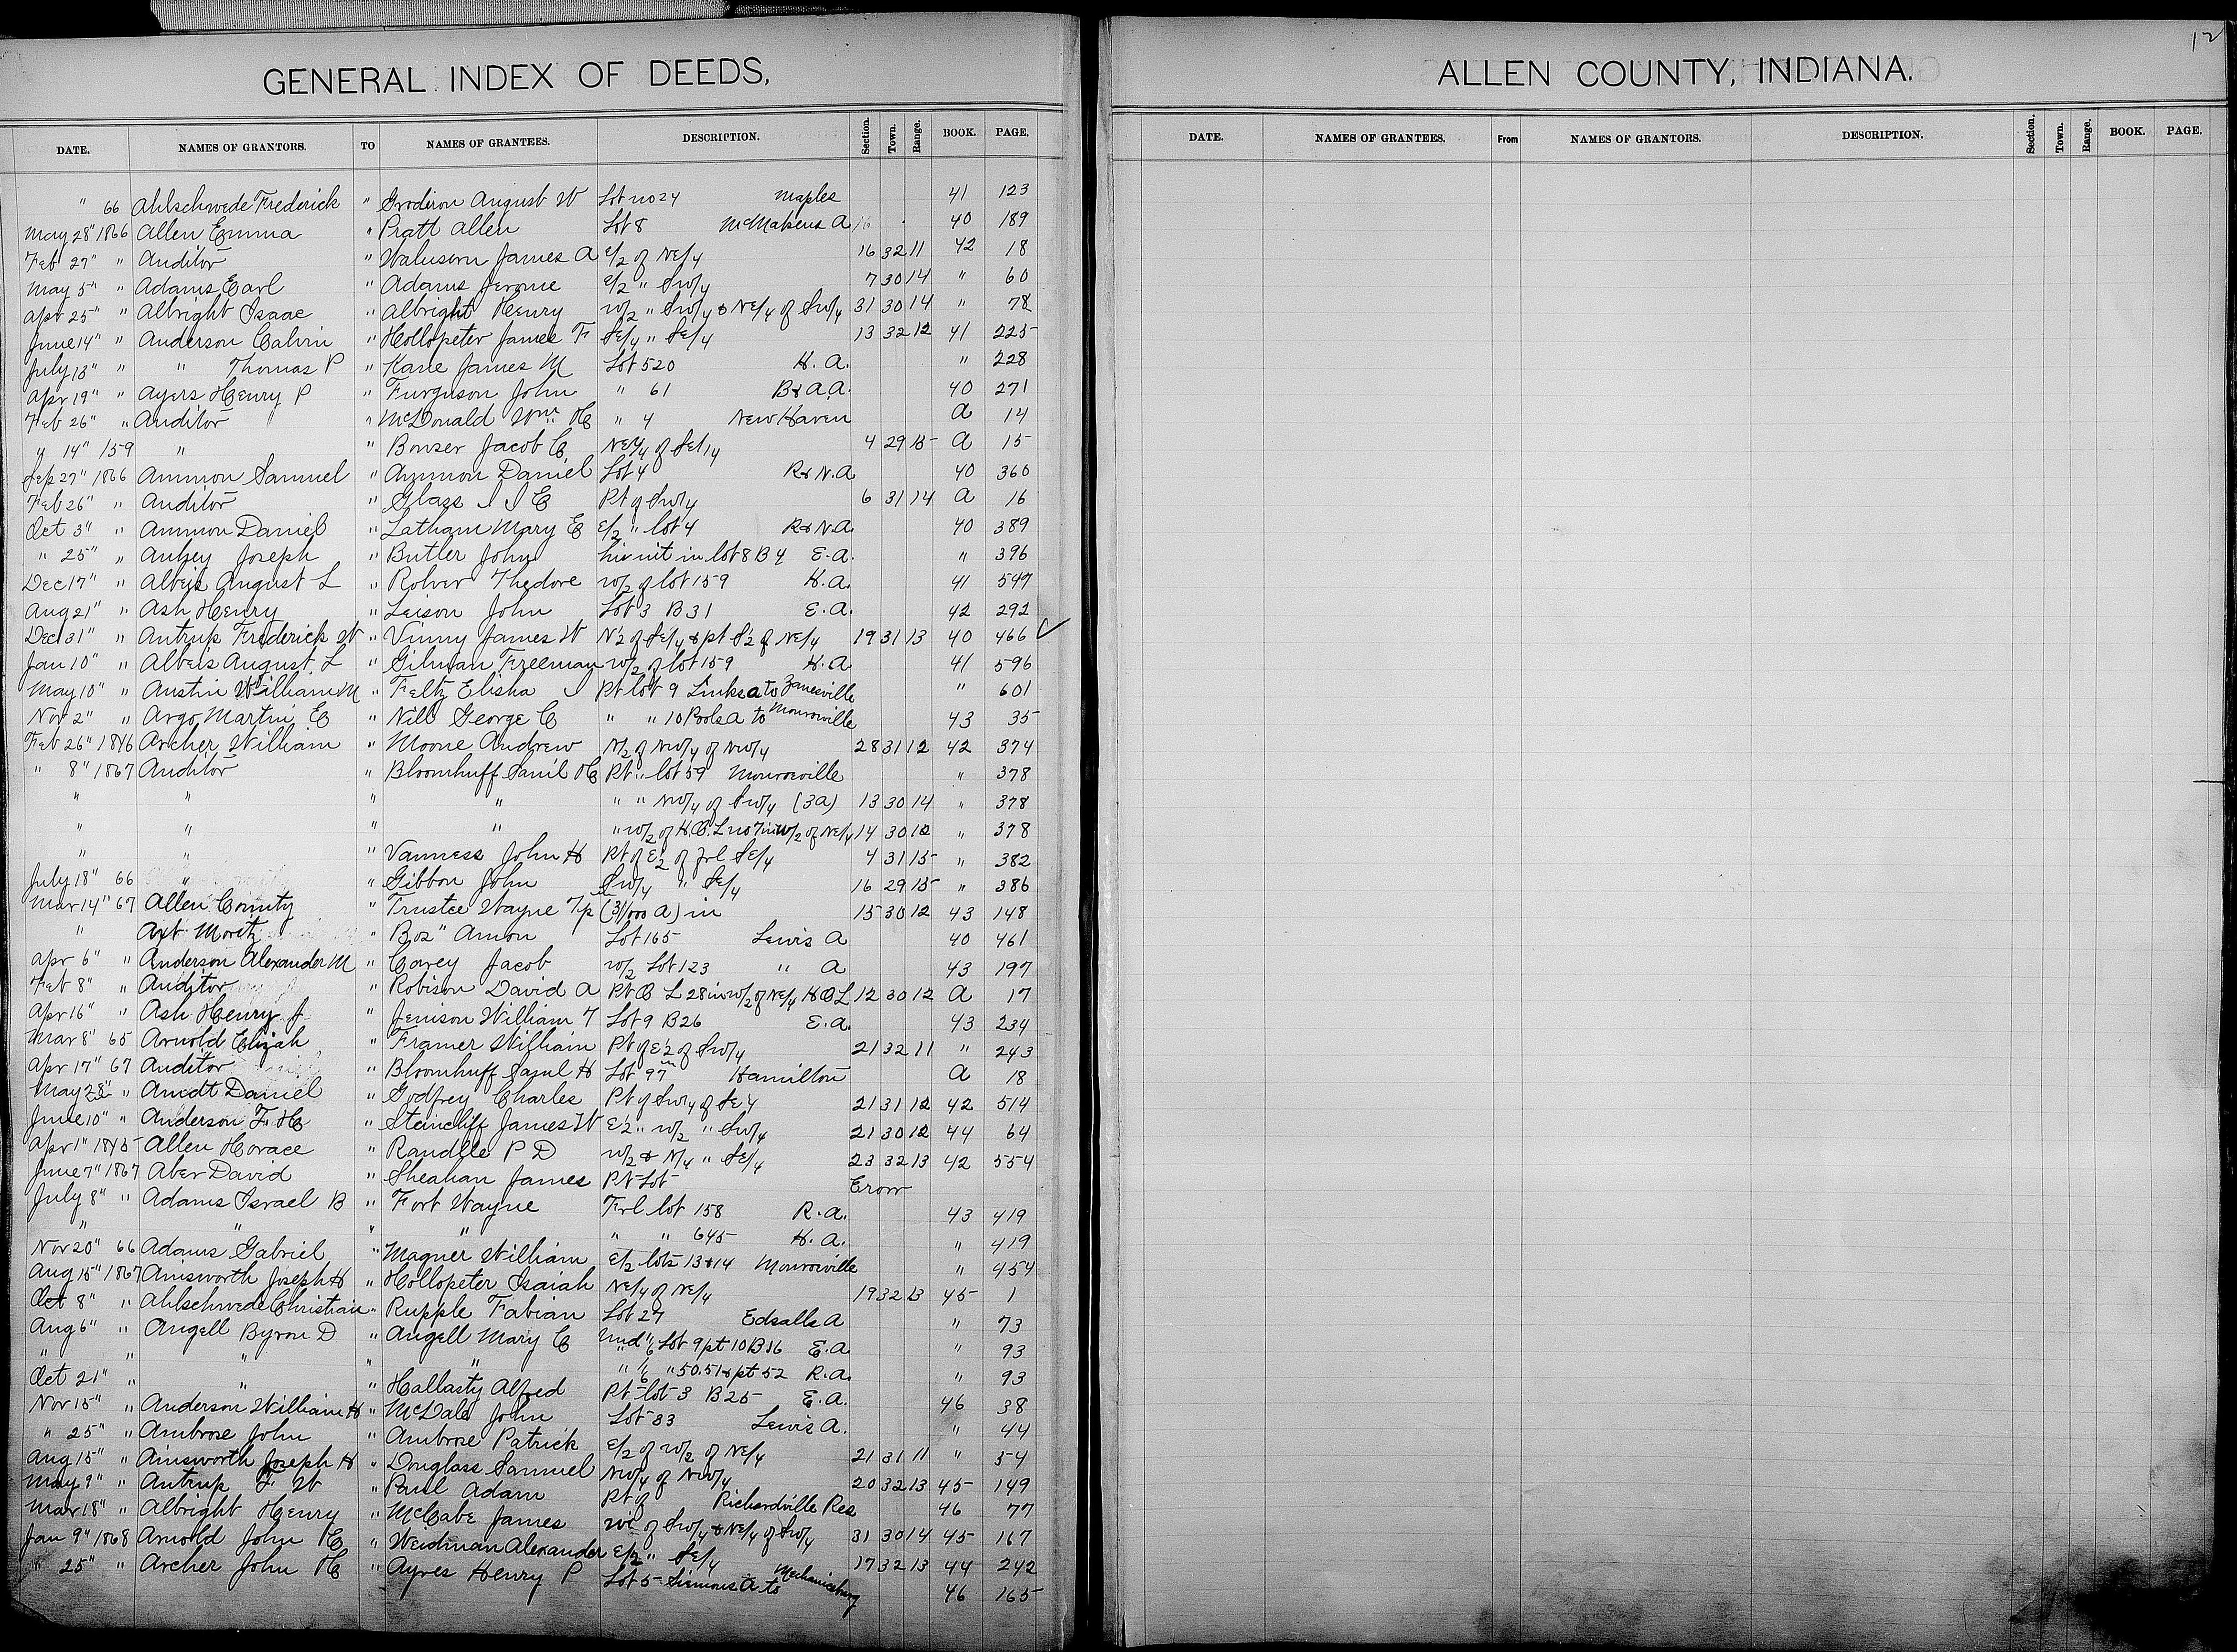 12
GENERAL INDEX OF DEEDS,
ALLEN COUNTY, INDIANA.
DATE. NAMES OF GRANTORS. TO NAMES OF GRANTEES. DESCRIPTION. Section. Town. Range. BOOK. PAGE.
DATE. NAMES OF GRANTEES. From NAMES OF GRANTORS. DESCRIPTION. Section. Town. Range. BOOK. PAGE.
" 66 Ahlschwede Frederick " Grodiron August W Lot no 24 Maples 41 123
May 28" 1866 Allen Emma " Pratt Allen Lot 8 McMakens A 16 40 189
Feb 27" " Auditor " James A E/2 of NE/4 16 32 11 42 18
May 5" " Adams Earl " Adams Jerome E/2 " SW/4 7 30 14 " 60
Apr 25" " Albright Isaac " Albright Henry W/2 " SW/4 & NE/4 of SW/4 31 30 14 " 78
June 14" " Anderson Calvin " Hollopeter James F SE/4 " SE/4 13 32 12 41 225
July 13" " " Thomas P " Kane James M Lot 520 H. A. " 228
Apr 19" " Ayers Henry P " Furguson John " 61 B&A.A. 40 271
Feb 26" " Auditor " McDonald Wm H " 4 New Haven A 14
" 14" 1859 " " Bowser Jacob C NE/4 of SE/4 4 29 15 A 15
Sep 27" 1866 Ammon Samuel " Ammon Daniel Lot 4 R&N.A 40 360
Feb 26" " Auditor " Glass I I C Pt of SW/4 6 31 14 A 16
Oct 3" " Ammon Daniel " Latham Mary E E/2 " lot 4 R&N.A. 40 389
" 25" " Joseph " Butler John his int in lot 8 B 4 E.A. " 396
Dec 17" " Albeis August L " Rolver Thedore W/2 of lot 159 H.A. 41 547
Aug 21" " Ash Henry " Leison John Lot 3 B 31 E.A. 42 292
Dec 31" " Antrup Frederick W " Vinny James W N 1/2 of SE/4 & pt S 1/2 of NE/4 19 31 13 40 466 ✓
Jan 10" " Albeis August L " Gilman Freeman W/2 of lot 159 H.A 41 596
May 10" " Austin William M " Feltz Elisha Pt lot 9 Links A to Zanesville " 601
Nov 2" " Argo Martin E " Nill George C " " 10 Pools A to Monroeville 43 35
Feb 26" 1846 Archer William " Moone Andrew N/2 of NW/4 of NW/4 28 31 12 42 374
" 8" 1867 Auditor " Bloomhuff Saml H Pt " lot 59 Monroeville " 378
" " " " " " NW/4 of SW/4 (3a) 13 30 14 " 378
" " " " " W/2 of H.B.L no 7 in W/2 of NE/4 14 30 12 " 378
" " " Vanness John H Pt of E 1/2 of frl SE/4 4 31 15 " 382
July 18" 66 " " Gibbon John SW/4 " SE/4 16 29 15 " 386
Mar 14" 67 Allen County " Trustee Wayne Tp (31/100 a) in 15 30 12 43 148
" Axt Moritz " Boz" Amon Lot 165 Lewis A 40 461
Apr 6" " Anderson Alexander M " Carey Jacob W/2 Lot 123 " A 43 197
Feb 8" " Auditor " Robison David A Pt B L 28 in W/2 of NE/4 H B L 12 30 12 A 17
Apr 16" " Ash Henry J " Jenison William T Lot 9 B 26 E.A. 43 234
Mar 8" 65 Arnold Elijah " Framer William Pt of E 1/2 of SW/4 21 32 11 " 243
Apr 17" 67 Auditor " Bloomhuff Saml H Lot 97 Hamilton A 18
May 28" " Arndt Daniel " Godfrey Charles Pt of SW/4 of SE/4 21 31 12 42 514
June 10" " Anderson F. H " Steincliff James W E 1/2 " W/2 " SW/4 21 30 12 44 64
Apr 1" 1845 Allen Horace " Randlle P D W/2 & N/4 " SE/4 23 32 13 42 554
June 7" 1867 Aber David " Sheahan James Pt Lot Error
July 8" " Adams Israel B " Fort Wayne Frl lot 158 R.A. 43 419
" " " " " " 645 H.A. " 419
Nov 20" 66 Adams Gabriel " Magner William E/2 lots 13&14 Monroeville " 454
Aug 15" 1867 Ainsworth Joseph H " Hollopeter Isaiah NE/4 of NE/4 19 32 13 45 1
Oct 8" " Ahlschwede Christian " Rupple Fabian Lot 27 Edsalls A " 73
Aug 6" " Angell Byron D " Angell Mary C Und 1/6 Lot 9 pt 10 B 16 E.A. " 93
" " " " " " 1/6 " 50.51 & pt 52 R.A. " 93
Oct 21" " " " Hallasty Alfred Pt lot 3 B 25 E.A. 46 38
Nov 15" " Anderson William H " McDale John Lot 33 Lewis A. " 44
" 25" " Ambrose John " Ambrose Patrick E/2 of W/2 of NE/4 21 31 11 " 54
Aug 15" " Ainsworth Joseph H " Douglass Samuel NW/4 of NW/4 20 32 13 45 149
May 9" " Antrup F W " Paul Adam Pt of Richardville Res 46 77
Mar 18" " Albright Henry " McCabe James of SW/4 & NE/4 of SW/4 31 30 14 45 167
Jan 9" 1868 Arnold John H " Weidman Alexander E/2 " SE/4 17 32 13 44 242
" 25" " Archer John H " Ayres Henry P Lot 5 Simons A to Mechanicsburg 46 165